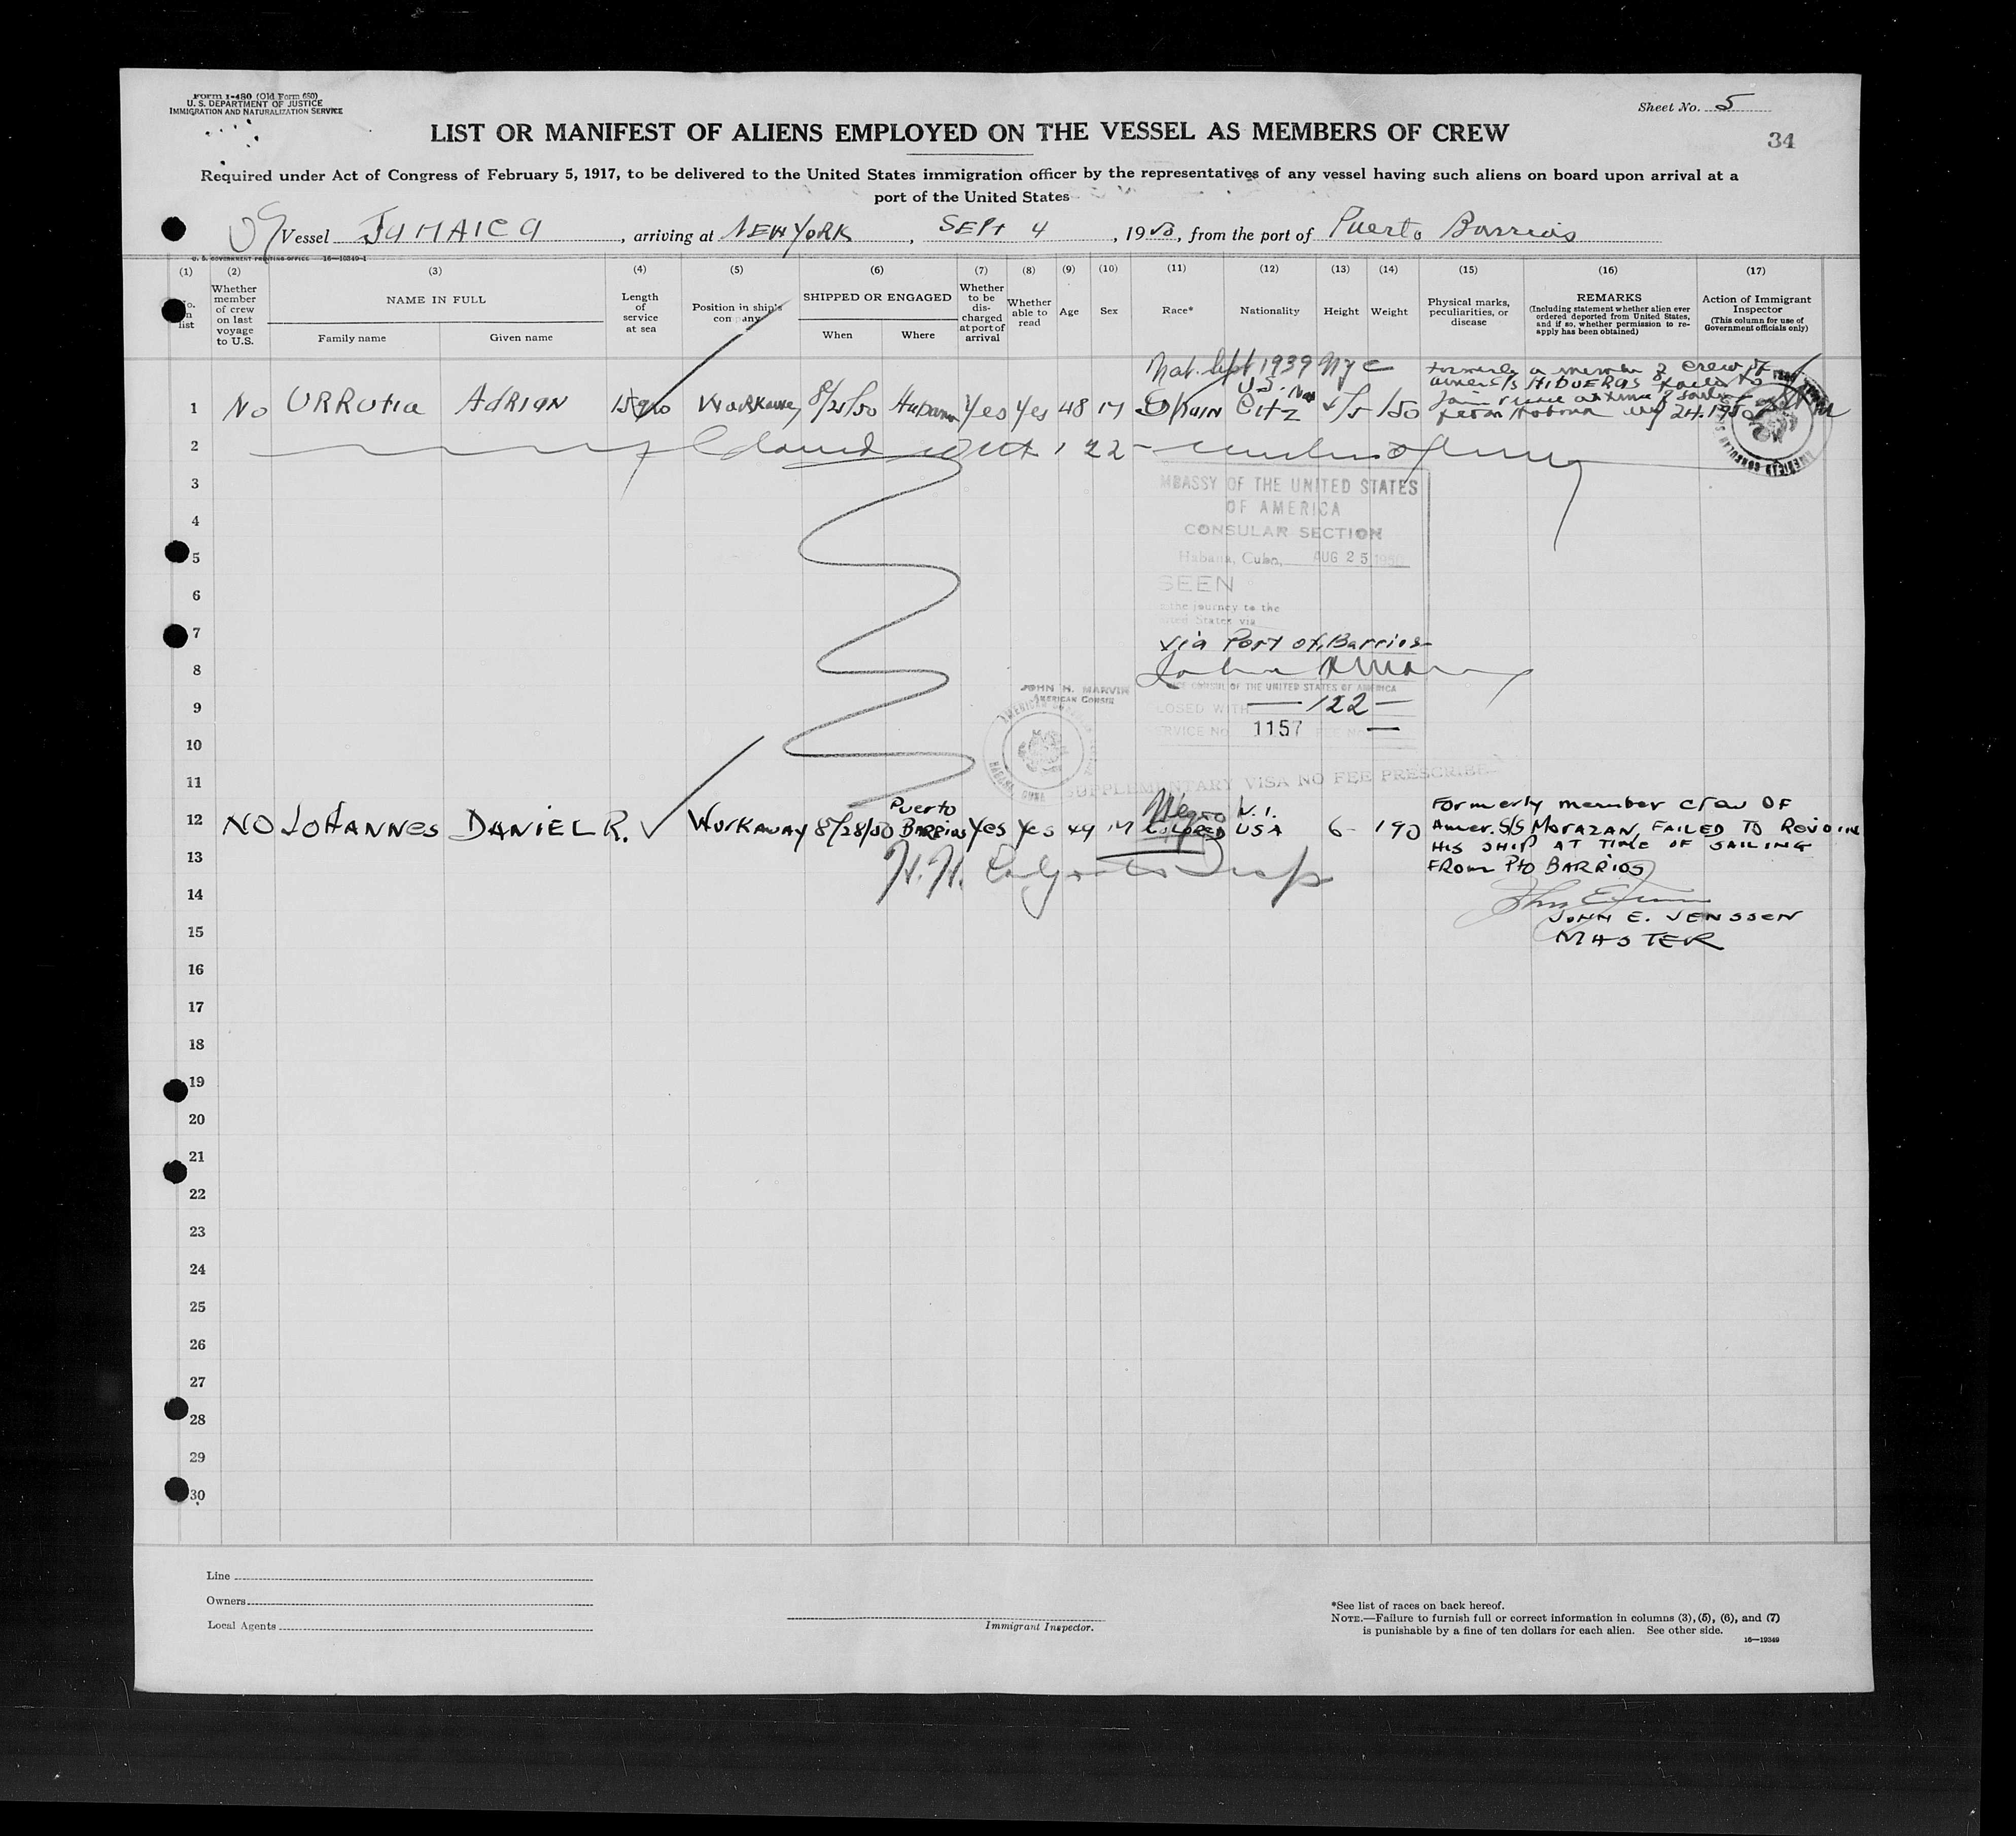 Form I-480 (Old Form 680)
U. S. DEPARTMENT OF JUSTICE
IMMIGRATION AND NATURALIZATION SERVICE
Sheet No. 5
34
LIST OR MANIFEST OF ALIENS EMPLOYED ON THE VESSEL AS MEMBERS OF CREW
Required under Act of Congress of February 5, 1917, to be delivered to the United States immigration officer by the representatives of any vessel having such aliens on board upon arrival at a
port of the United States
Vessel JAMAICA, arriving at NEW YORK, SEPT 4, 1950, from the port of Puerto Barrios
U. S. GOVERNMENT PRINTING OFFICE 16—19349-1
(1) (2) (3) (4) (5) (6) (7) (8) (9) (10) (11) (12) (13) (14) (15) (16) (17)
No. on list
Whether member of crew on last voyage to U.S.
NAME IN FULL
Family name Given name
Length of service at sea
Position in ship's company
SHIPPED OR ENGAGED
When Where
Whether to be discharged at port of arrival
Whether able to read
Age
Sex
Race*
Nationality
Height
Weight
Physical marks, peculiarities, or disease
REMARKS
(Including statement whether alien ever ordered deported from United States, and if so, whether permission to reapply has been obtained)
Action of Immigrant Inspector
(This column for use of Government officials only)
Nat. Sept 1939 NYC
1 No URRUTIA ADRIAN Workaway 8/25/50 Habana Yes Yes 48 M Spain U.S. Citz 5/5 150
formerly a member of crew of
failed to
from Habana Aug 24. 1950
2
3
4
5
6
7
8
9
10
11
EMBASSY OF THE UNITED STATES
OF AMERICA
CONSULAR SECTION
Habana, Cuba, AUG 25 1950
SEEN
the journey to the
United States via
Via Port of Barrios
VICE CONSUL OF THE UNITED STATES OF AMERICA
CLOSED WITH — 122 —
SERVICE NO. 1157 FEE NO. —
JOHN H. MARVIN
AMERICAN CONSUL
HABANA, CUBA
SUPPLEMENTARY VISA NO FEE PRESCRIBED
12 NO JOHANNES DANIEL R. Workaway 8/28/50 Puerto BARRIOS Yes Yes 49 M Negro COLORED V.I. USA 6- 190
Formerly member crew OF
Amer. S/S MORAZAN, FAILED TO REJOIN
HIS SHIP AT TIME OF SAILING
FROM Pto BARRIOS
JOHN E. JENSSEN
MASTER
13
14
15
16
17
18
19
20
21
22
23
24
25
26
27
28
29
30
Line
Owners
Local Agents
Immigrant Inspector.
*See list of races on back hereof.
NOTE.—Failure to furnish full or correct information in columns (3), (5), (6), and (7)
is punishable by a fine of ten dollars for each alien. See other side.
16—19349